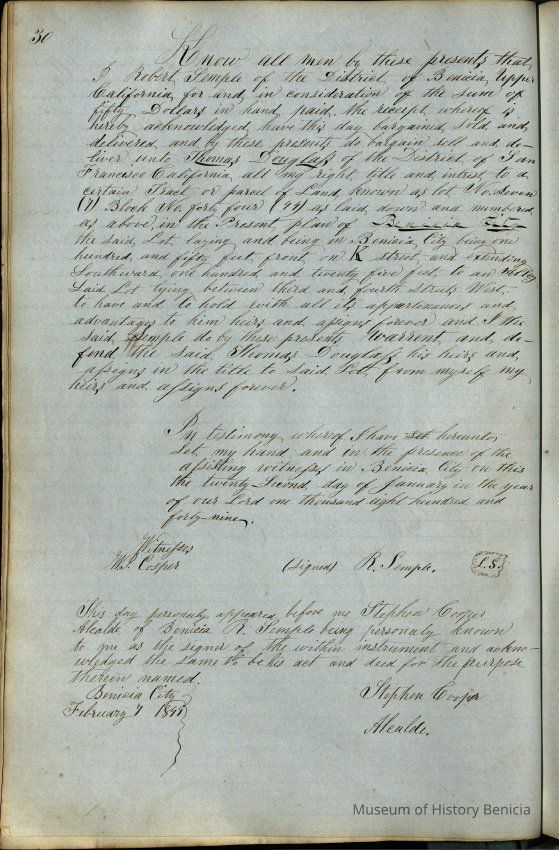 30
Know all men by these presents that,
I Robert Semple of the District of Benicia Upper
California, for and in consideration of the sum of
fifty Dollars in hand paid, the receipt whereof is
hereby acknowledged, have this day bargained, sold, and,
delivered and by these presents do bargain sell and de-
liver unto Thomas Douglass of the District of San
Francisco California all my right title and intrest to a
certain Tract or parcel of Land, known as lot No. Seven
(7) Block No. forty four (44) as laid down and numbered
as above in the Present plan of Benicia City
the said Lot laying and being in Benicia City being one
hundred, and fifty feet front on K street and extending
Southward, one hundred and twenty five feet to an Alley
Said Lot lying between third and fourth streets West;
to have and to hold with all its appertenances and
advantages to him heirs and assigns forever and I the
said Semple do by these presents Warrent, and de-
fend, the said Thomas Douglass his heirs and,
assigns in the title to said Lott from myself my
heirs and assigns forever.
In testimony whereof I have set hereunto
Set my hand and in the presence of the
assisting witnesses in Benicia City on this
the twenty Second day of January in the year
of our Lord one thousand eight hundred and
forty-nine.
Witnesses
W. Cosper (Signed) R. Semple. L.S.
This day personaly appeared before me Stephen Cooper
Alcalde of Benicia R. Semple being personaly known
to me as the signer of the within instrument and acknow-
wledged the same to be his act and deed for the purpose
therein named.
Benicia City Stephen Cooper
February 7 1849
Alcalde.
Museum of History Benicia